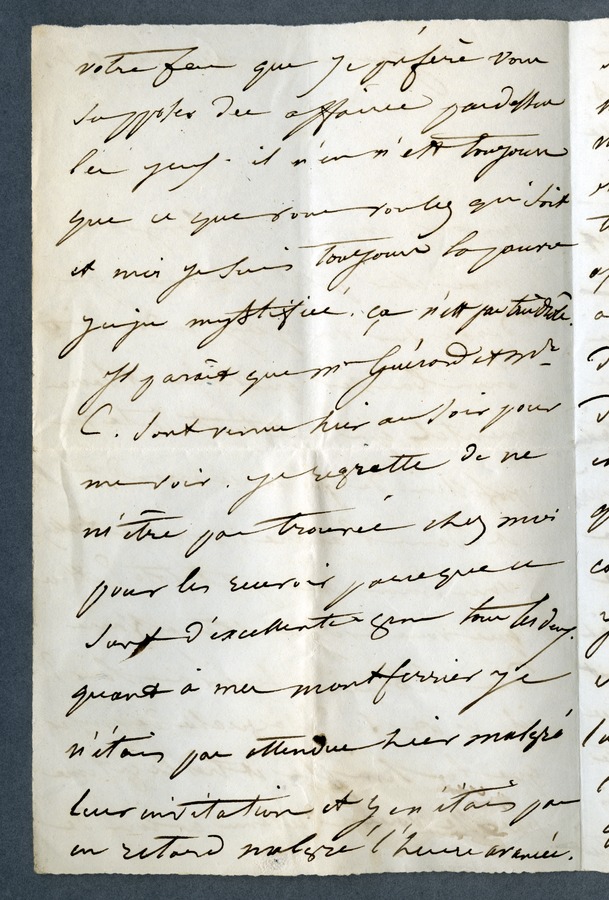 votre feu que je préfère vous
supposer des affaires pardessus
les yeux. il n'en n'est toujours
que ce que vous voulez qu'il soit
et moi je suis toujours la pauvre
mystifiée. ça n'est pas très drôle.
Il parait que mr Guérard et mr
C. sont venus hier au soir pour
me voir. je regrette de ne
m'être pas trouvée chez moi
pour les recevoir parceque ce
sont d'excellents gens tous les deux.
quant à mes montferrier je
n'étais pas attendue hier malgré
leur invitation et je n'étais pas
en retard malgré l'heure avancée.